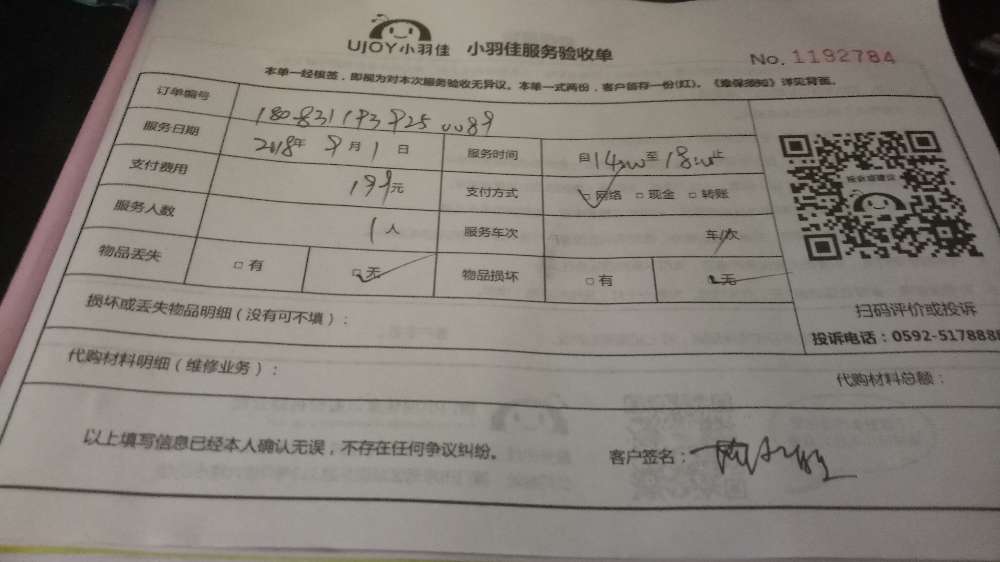 UJOY小羽佳 小羽佳服务验收单
No. 1192784
本单一经银签，即视为对本次服务验收无异议。本单一式两份，客户留存一份(红)。《维保须知》详见背面。
订单编号
服务日期 2018年 9月 1日 服务时间 自14:00至18:00止
支付费用 199元 支付方式 ☑网络 □现金 □转账
服务人数 1人 服务车次 车/次
物品丢失 □有 ☑无 物品损坏 □有 ☑无
投诉或建议
扫码评价或投诉
损坏或丢失物品明细（没有可不填）：
投诉电话：0592-517888
代购材料明细（维修业务）：
代购材料总额：
以上填写信息已经本人确认无误，不存在任何争议纠纷。
客户签名：